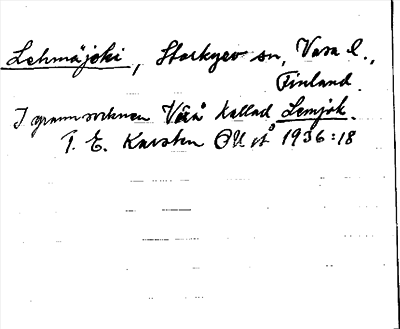 Lehmäjoki, Storkyro sn, Vasa l.,
Finland.
I grannsocknen Vörå kallad Lemjok.
T. E. Karsten OUÅ 1936:18